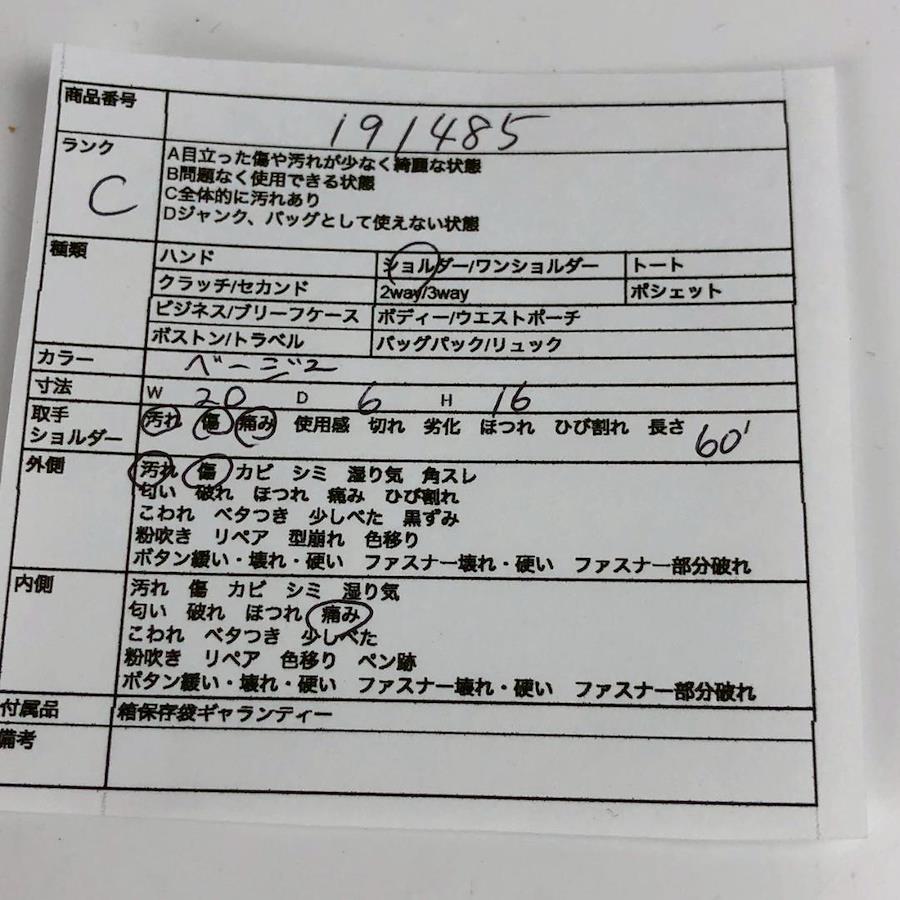 商品番号 191485
ランク C
A目立った傷や汚れが少なく綺麗な状態
B問題なく使用できる状態
C全体的に汚れあり
Dジャンク、バッグとして使えない状態
種類 ハンド ショルダー/ワンショルダー トート
クラッチ/セカンド 2way/3way ポシェット
ビジネス/ブリーフケース ボディー/ウエストポーチ
ボストン/トラベル バッグパック/リュック
カラー ベージュ
寸法 W 20 D 6 H 16
取手 汚れ 傷 痛み 使用感 切れ 劣化 ほつれ ひび割れ 長さ 60
ショルダー
外側 汚れ 傷 カビ シミ 湿り気 角スレ
匂い 破れ ほつれ 痛み ひび割れ
こわれ ベタつき 少しべた 黒ずみ
粉吹き リペア 型崩れ 色移り
ボタン緩い・壊れ・硬い ファスナー壊れ・硬い ファスナー部分破れ
内側 汚れ 傷 カビ シミ 湿り気
匂い 破れ ほつれ 痛み
こわれ ベタつき 少しべた
粉吹き リペア 色移り ペン跡
ボタン緩い・壊れ・硬い ファスナー壊れ・硬い ファスナー部分破れ
付属品 箱保存袋ギャランティー
備考